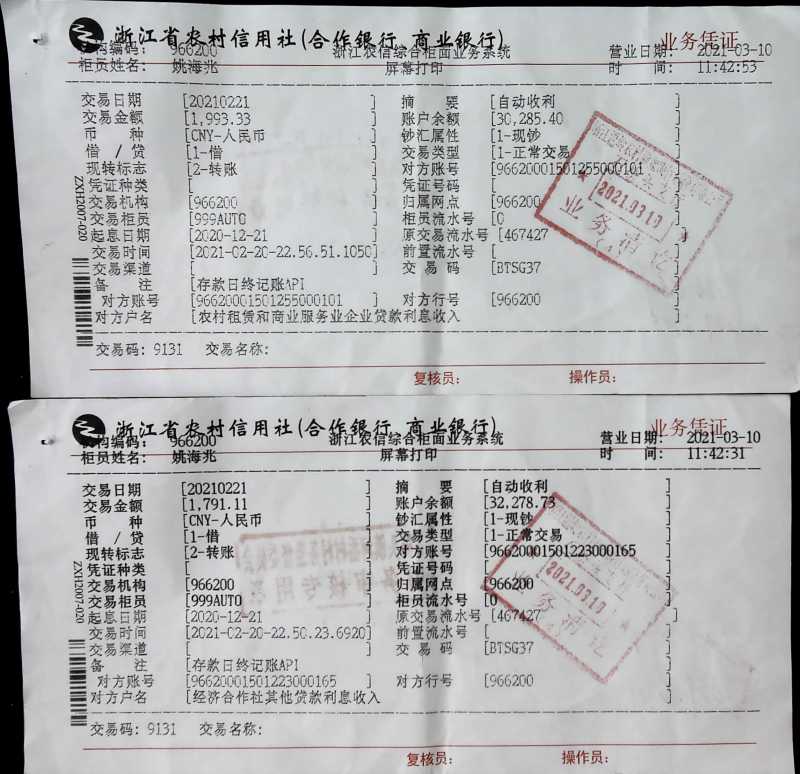 浙江省农村信用社(合作银行、商业银行) 业务凭证
机构编码: 966200 浙江农信综合柜面业务系统 营业日期: 2021-03-10
柜员姓名: 姚海兆 屏幕打印 时 间: 11:42:53
交易日期 [20210221 ] 摘 要 [自动收利 ]
交易金额 [1,993.33 ] 账户余额 [30,285.40 ]
币 种 [CNY-人民币 ] 钞汇属性 [1-现钞
借 / 贷 [1-借 ] 交易类型 [1-正常交易
现转标志 [2-转账 ] 对方账号 [96620001501255000101 ]
凭证种类 [ ] 凭证号码 [
交易机构 [966200 ] 归属网点 [966200
交易柜员 [999AUTO ] 柜员流水号 [0
起息日期 [2020-12-21 ] 原交易流水号 [467427 ]
交易时间 [2021-02-20-22.56.51.1050] 前置流水号 [
交易渠道 [ ] 交 易 码 [BTSG37 ]
备 注 [存款日终记账API ]
对方账号 [96620001501255000101 ] 对方行号 [966200 ]
对方户名 [农村租赁和商业服务业企业贷款利息收入 ]
ZXH2007-020
2021.03.10
业务清讫
交易码: 9131 交易名称:
复核员: 操作员:
浙江省农村信用社(合作银行、商业银行) 业务凭证
机构编码: 966200 浙江农信综合柜面业务系统 营业日期: 2021-03-10
柜员姓名: 姚海兆 屏幕打印 时 间: 11:42:31
交易日期 [20210221 ] 摘 要 [自动收利 ]
交易金额 [1,791.11 ] 账户余额 [32,278.73 ]
币 种 [CNY-人民币 ] 钞汇属性 [1-现钞
借 / 贷 [1-借 ] 交易类型 [1-正常交易
现转标志 [2-转账 ] 对方账号 [96620001501223000165
凭证种类 [ ] 凭证号码 [
交易机构 [966200 ] 归属网点 [966200
交易柜员 [999AUTO ] 柜员流水号 [0
起息日期 [2020-12-21 ] 原交易流水号 [467427 ]
交易时间 [2021-02-20-22.50.23.6920] 前置流水号 [
交易渠道 [ ] 交 易 码 [BTSG37 ]
备 注 [存款日终记账API ]
对方账号 [96620001501223000165 ] 对方行号 [966200 ]
对方户名 [经济合作社其他贷款利息收入 ]
ZXH2007-020
2021.03.10
业务清讫
交易码: 9131 交易名称:
复核员: 操作员: